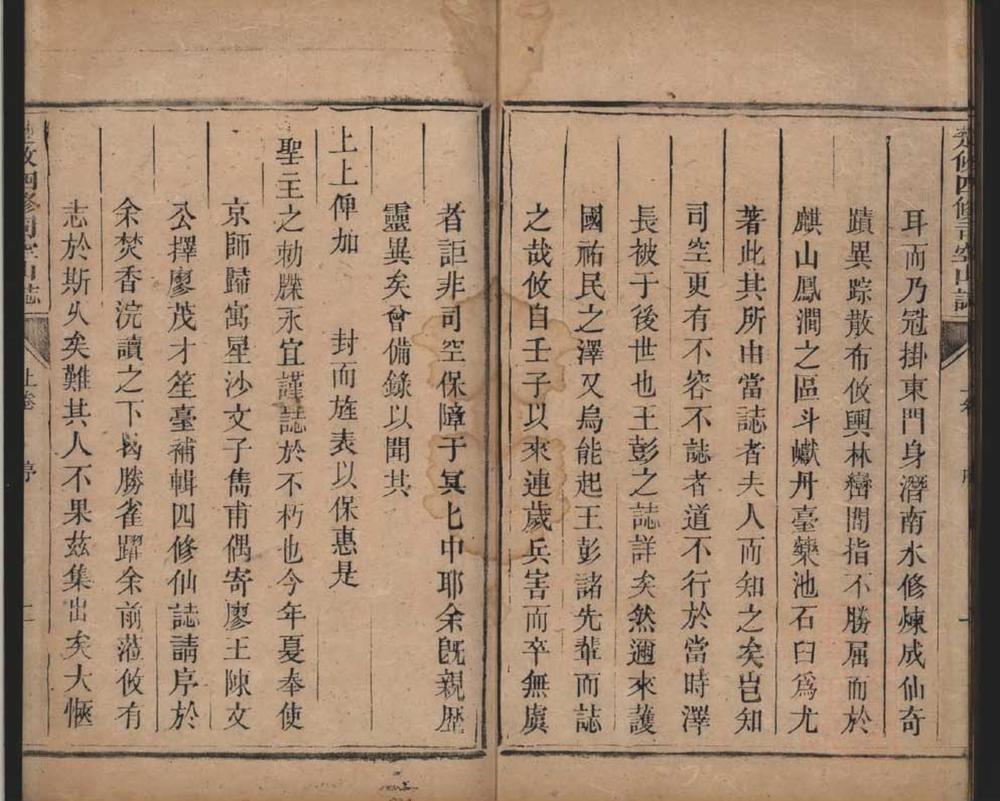 耳而乃冠掛東門身潛南水修煉成仙奇
蹟異踪散布攸輿林巒間指不勝屈而於
麒山鳳澗之區斗巘丹臺藥池石臼爲尤
著此其所由當誌者夫人而知之矣豈知
司空更有不容不誌者道不行於當時澤
長被于後世也王彭之誌詳矣然邇來護
國祐民之澤又烏能起王彭諸先輩而誌
之哉攸自壬子以來連歲兵害而卒無虞
者詎非司空保障于冥匕中耶余旣親歴
靈異矣曾備錄以聞其
上上俾加 封而旌表以保惠是
聖王之勅牒永宜謹誌於不朽也今年夏奉使
京師歸寓星沙文子雋甫偶寄廖王陳文
公擇廖茂才笙臺補輯四修仙誌請序於
余焚香浣讀之下曷勝雀躍余前蒞攸有
志於斯乆矣難其人不果茲集出矣大愜
攸四修司空山誌 上卷 序